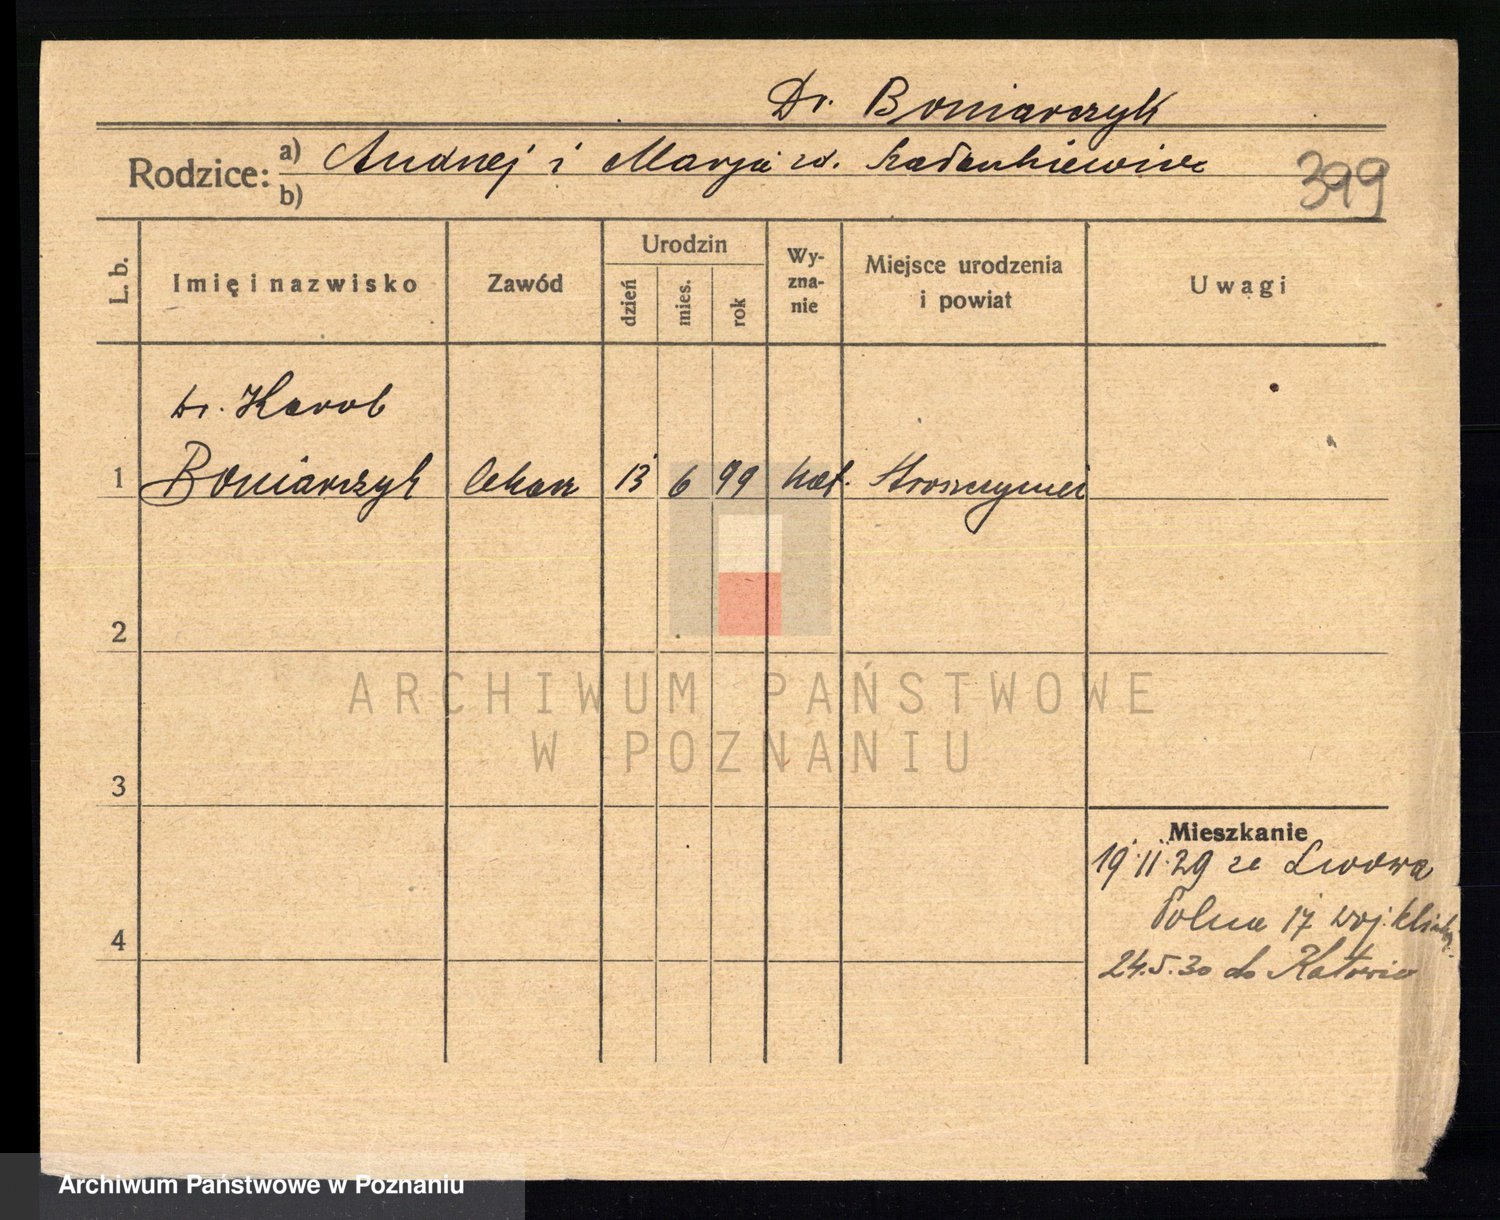 Dr. Boniarczyk
Rodzice: a) Andrzej i Marja zd.
b)
399
L. b.
Imię i nazwisko
Zawód
Urodzin
dzień
mies.
rok
Wy-
zna-
nie
Miejsce urodzenia
i powiat
Uwagi
Dr. Karol
1 Boniarczyk lekarz 13 6 99 kat.
2
3
4
Mieszkanie
19.11.29 ze Lwowa
Polna 17 woj.
24.5.30 do Katowic
ARCHIWUM PAŃSTWOWE
W POZNANIU
Archiwum Państwowe w Poznaniu